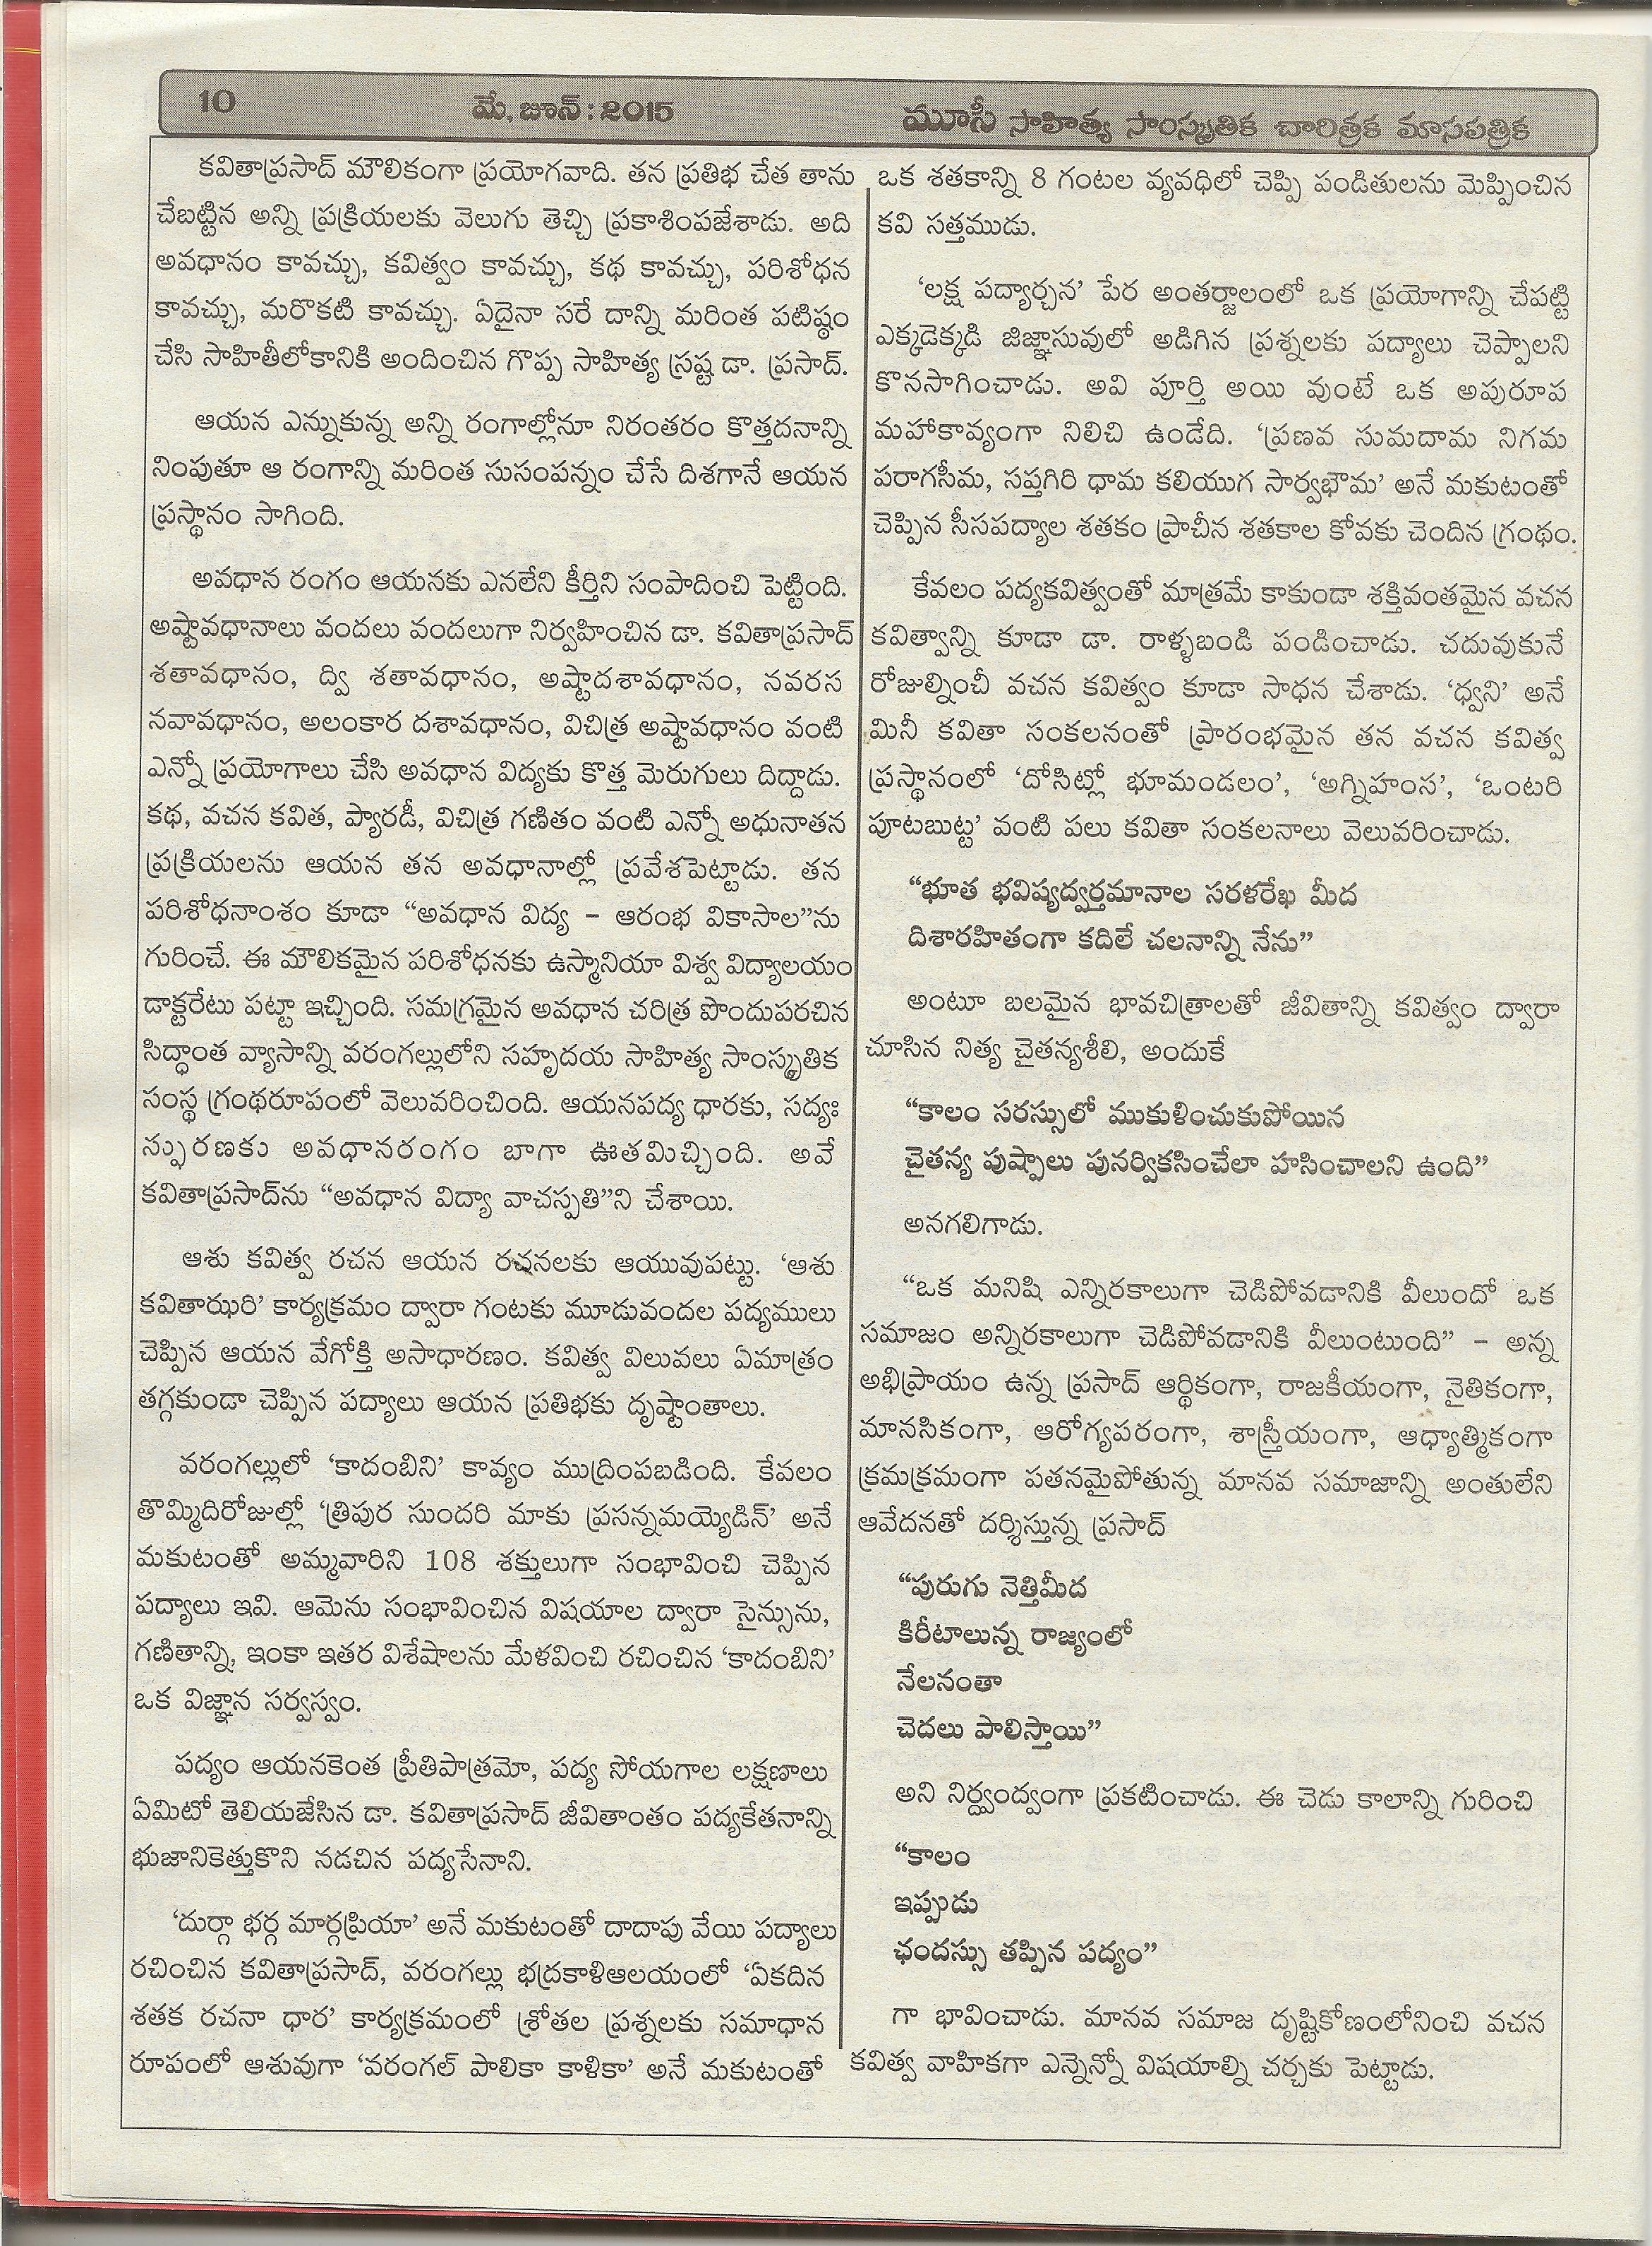 10 మే, జూన్ : 2015 మూసీ సాహిత్య సాంస్కృతిక చారిత్రక మాసపత్రిక
కవితాప్రసాద్ మౌలికంగా ప్రయోగవాది. తన ప్రతిభ చేత తాను
చేబట్టిన అన్ని ప్రక్రియలకు వెలుగు తెచ్చి ప్రకాశింపజేశాడు. అది
అవధానం కావచ్చు, కవిత్వం కావచ్చు, కథ కావచ్చు, పరిశోధన
కావచ్చు, మరొకటి కావచ్చు. ఏదైనా సరే దాన్ని మరింత పటిష్ఠం
చేసి సాహితీలోకానికి అందించిన గొప్ప సాహిత్య స్రష్ట డా. ప్రసాద్.
ఆయన ఎన్నుకున్న అన్ని రంగాల్లోనూ నిరంతరం కొత్తదనాన్ని
నింపుతూ ఆ రంగాన్ని మరింత సుసంపన్నం చేసే దిశగానే ఆయన
ప్రస్థానం సాగింది.
అవధాన రంగం ఆయనకు ఎనలేని కీర్తిని సంపాదించి పెట్టింది.
అష్టావధానాలు వందలు వందలుగా నిర్వహించిన డా. కవితాప్రసాద్
శతావధానం, ద్వి శతావధానం, అష్టాదశావధానం, నవరస
నవావధానం, అలంకార దశావధానం, విచిత్ర అష్టావధానం వంటి
ఎన్నో ప్రయోగాలు చేసి అవధాన విద్యకు కొత్త మెరుగులు దిద్దాడు.
కథ, వచన కవిత, ప్యారడీ, విచిత్ర గణితం వంటి ఎన్నో అధునాతన
ప్రక్రియలను ఆయన తన అవధానాల్లో ప్రవేశపెట్టాడు. తన
పరిశోధనాంశం కూడా “అవధాన విద్య – ఆరంభ వికాసాల”ను
గురించే. ఈ మౌలికమైన పరిశోధనకు ఉస్మానియా విశ్వ విద్యాలయం
డాక్టరేటు పట్టా ఇచ్చింది. సమగ్రమైన అవధాన చరిత్ర పొందుపరచిన
సిద్ధాంత వ్యాసాన్ని వరంగల్లులోని సహృదయ సాహిత్య సాంస్కృతిక
సంస్థ గ్రంథరూపంలో వెలువరించింది. ఆయనపద్య ధారకు, సద్యః
స్ఫురణకు అవధానరంగం బాగా ఊతమిచ్చింది. అవే
కవితాప్రసాద్‌ను “అవధాన విద్యా వాచస్పతి”ని చేశాయి.
ఆశు కవిత్వ రచన ఆయన రచనలకు ఆయువుపట్టు. ‘ఆశు
కవితాఝరి’ కార్యక్రమం ద్వారా గంటకు మూడువందల పద్యములు
చెప్పిన ఆయన వేగోక్తి అసాధారణం. కవిత్వ విలువలు ఏమాత్రం
తగ్గకుండా చెప్పిన పద్యాలు ఆయన ప్రతిభకు దృష్టాంతాలు.
వరంగల్లులో ‘కాదంబిని’ కావ్యం ముద్రింపబడింది. కేవలం
తొమ్మిదిరోజుల్లో ‘త్రిపుర సుందరి మాకు ప్రసన్నమయ్యెడిన్’ అనే
మకుటంతో అమ్మవారిని 108 శక్తులుగా సంభావించి చెప్పిన
పద్యాలు ఇవి. ఆమెను సంభావించిన విషయాల ద్వారా సైన్సును,
గణితాన్ని, ఇంకా ఇతర విశేషాలను మేళవించి రచించిన ‘కాదంబిని’
ఒక విజ్ఞాన సర్వస్వం.
పద్యం ఆయనకెంత ప్రీతిపాత్రమో, పద్య సోయగాల లక్షణాలు
ఏమిటో తెలియజేసిన డా. కవితాప్రసాద్ జీవితాంతం పద్యకేతనాన్ని
భుజానికెత్తుకొని నడచిన పద్యసేనాని.
‘దుర్గా భర్గ మార్గప్రియా’ అనే మకుటంతో దాదాపు వేయి పద్యాలు
రచించిన కవితాప్రసాద్, వరంగల్లు భద్రకాళిఆలయంలో ‘ఏకదిన
శతక రచనా ధార’ కార్యక్రమంలో శ్రోతల ప్రశ్నలకు సమాధాన
రూపంలో ఆశువుగా ‘వరంగల్ పాలికా కాళికా’ అనే మకుటంతో
ఒక శతకాన్ని 8 గంటల వ్యవధిలో చెప్పి పండితులను మెప్పించిన
కవి సత్తముడు.
‘లక్ష పద్యార్చన’ పేర అంతర్జాలంలో ఒక ప్రయోగాన్ని చేపట్టి
ఎక్కడెక్కడి జిజ్ఞాసువులో అడిగిన ప్రశ్నలకు పద్యాలు చెప్పాలని
కొనసాగించాడు. అవి పూర్తి అయి వుంటే ఒక అపురూప
మహాకావ్యంగా నిలిచి ఉండేది. ‘ప్రణవ సుమదామ నిగమ
పరాగసీమ, సప్తగిరి ధామ కలియుగ సార్వభౌమ’ అనే మకుటంతో
చెప్పిన సీసపద్యాల శతకం ప్రాచీన శతకాల కోవకు చెందిన గ్రంథం.
కేవలం పద్యకవిత్వంతో మాత్రమే కాకుండా శక్తివంతమైన వచన
కవిత్వాన్ని కూడా డా. రాళ్ళబండి పండించాడు. చదువుకునే
రోజుల్నించీ వచన కవిత్వం కూడా సాధన చేశాడు. ‘ధ్వని’ అనే
మినీ కవితా సంకలనంతో ప్రారంభమైన తన వచన కవిత్వ
ప్రస్థానంలో ‘దోసిట్లో భూమండలం’, ‘అగ్నిహంస’, ‘ఒంటరి
పూటబుట్ట’ వంటి పలు కవితా సంకలనాలు వెలువరించాడు.
“భూత భవిష్యద్వర్తమానాల సరళరేఖ మీద
దిశారహితంగా కదిలే చలనాన్ని నేను”
అంటూ బలమైన భావచిత్రాలతో జీవితాన్ని కవిత్వం ద్వారా
చూసిన నిత్య చైతన్యశీలి, అందుకే
“కాలం సరస్సులో ముకుళించుకుపోయిన
చైతన్య పుష్పాలు పునర్వికసించేలా హసించాలని ఉంది”
అనగలిగాడు.
“ఒక మనిషి ఎన్నిరకాలుగా చెడిపోవడానికి వీలుందో ఒక
సమాజం అన్నిరకాలుగా చెడిపోవడానికి వీలుంటుంది” – అన్న
అభిప్రాయం ఉన్న ప్రసాద్ ఆర్థికంగా, రాజకీయంగా, నైతికంగా,
మానసికంగా, ఆరోగ్యపరంగా, శాస్త్రీయంగా, ఆధ్యాత్మికంగా
క్రమక్రమంగా పతనమైపోతున్న మానవ సమాజాన్ని అంతులేని
ఆవేదనతో దర్శిస్తున్న ప్రసాద్
“పురుగు నెత్తిమీద
కిరీటాలున్న రాజ్యంలో
నేలనంతా
చెదలు పాలిస్తాయి”
అని నిర్ద్వంద్వంగా ప్రకటించాడు. ఈ చెడు కాలాన్ని గురించి
“కాలం
ఇప్పుడు
ఛందస్సు తప్పిన పద్యం”
గా భావించాడు. మానవ సమాజ దృష్టికోణంలోనించి వచన
కవిత్వ వాహికగా ఎన్నెన్నో విషయాల్ని చర్చకు పెట్టాడు.